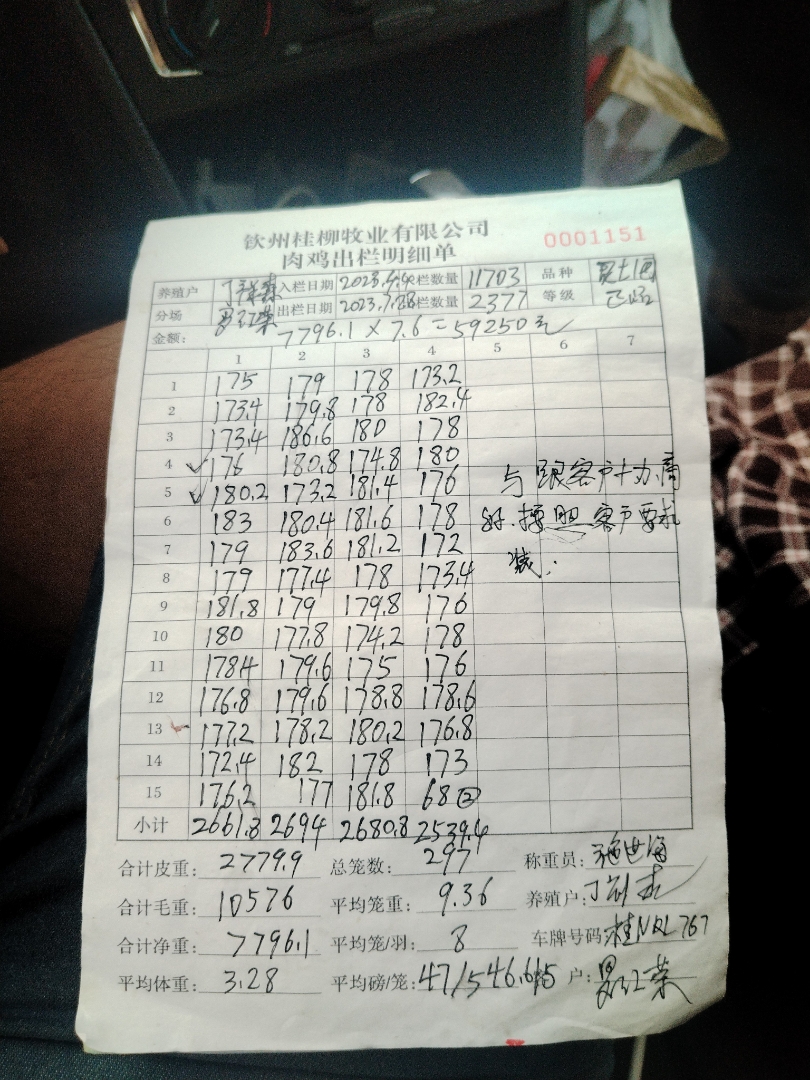 钦州桂柳牧业有限公司
肉鸡出栏明细单 0001151
养殖户 入栏日期 2023.4.4 栏数量 11703 品种
分场 罗红荣 出栏日期 2023.7.28 栏数量 2377 等级
金额: 7796.1 × 7.6 = 59250元
1 2 3 4 5 6 7
1 175 179 178 173.2
2 173.4 179.8 178 182.4
3 173.4 186.6 180 178
4 176 180.8 174.8 180
5 180.2 173.2 181.4 176 与跟客户
6 183 180.4 181.6 178 好.按照客户要
7 179 183.6 181.2 172 装.
8 179 177.4 178 173.4
9 181.8 179 179.8 176
10 180 177.8 174.2 178
11 178.4 179.6 175 176
12 176.8 179.6 178.8 178.6
13 177.2 178.2 180.2 176.8
14 172.4 182 178 173
15 176.2 177 181.8 68②
小计 2661.8 2694 2680.8 2539.4
合计皮重: 2779.9 总笼数: 297 称重员:
合计毛重: 10576 平均笼重: 9.36 养殖户:
合计净重: 7796.1 平均笼/羽: 8 车牌号码: 桂NRL767
平均体重: 3.28 平均磅/笼: 47/546.6/15 户: 罗红荣